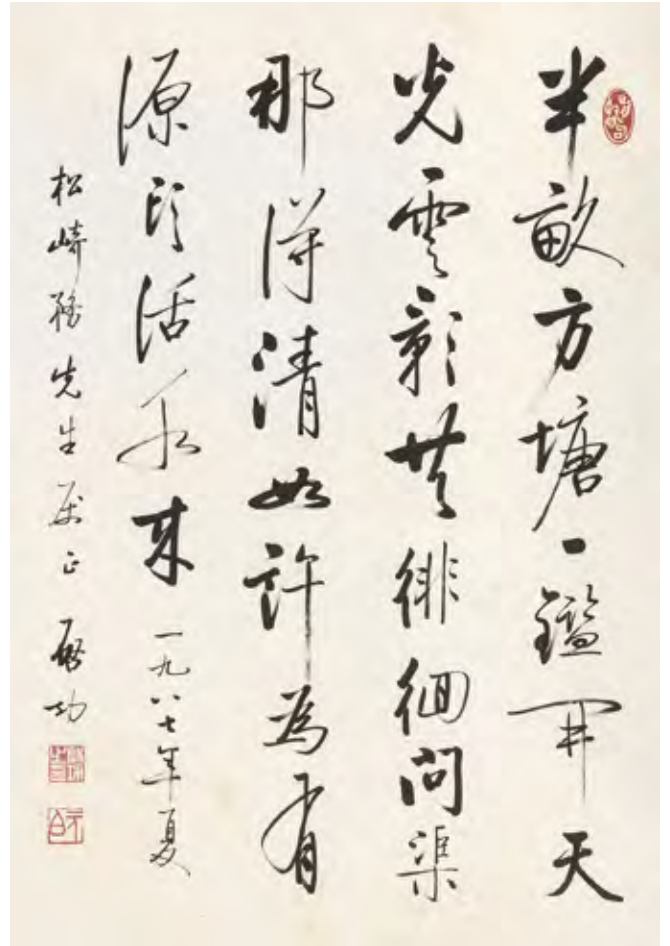 半畝方塘一鑑開天
光雲影共徘徊問渠
那得清如許為有
源頭活水來 一九八七年夏
松崎 先生 正 啟功